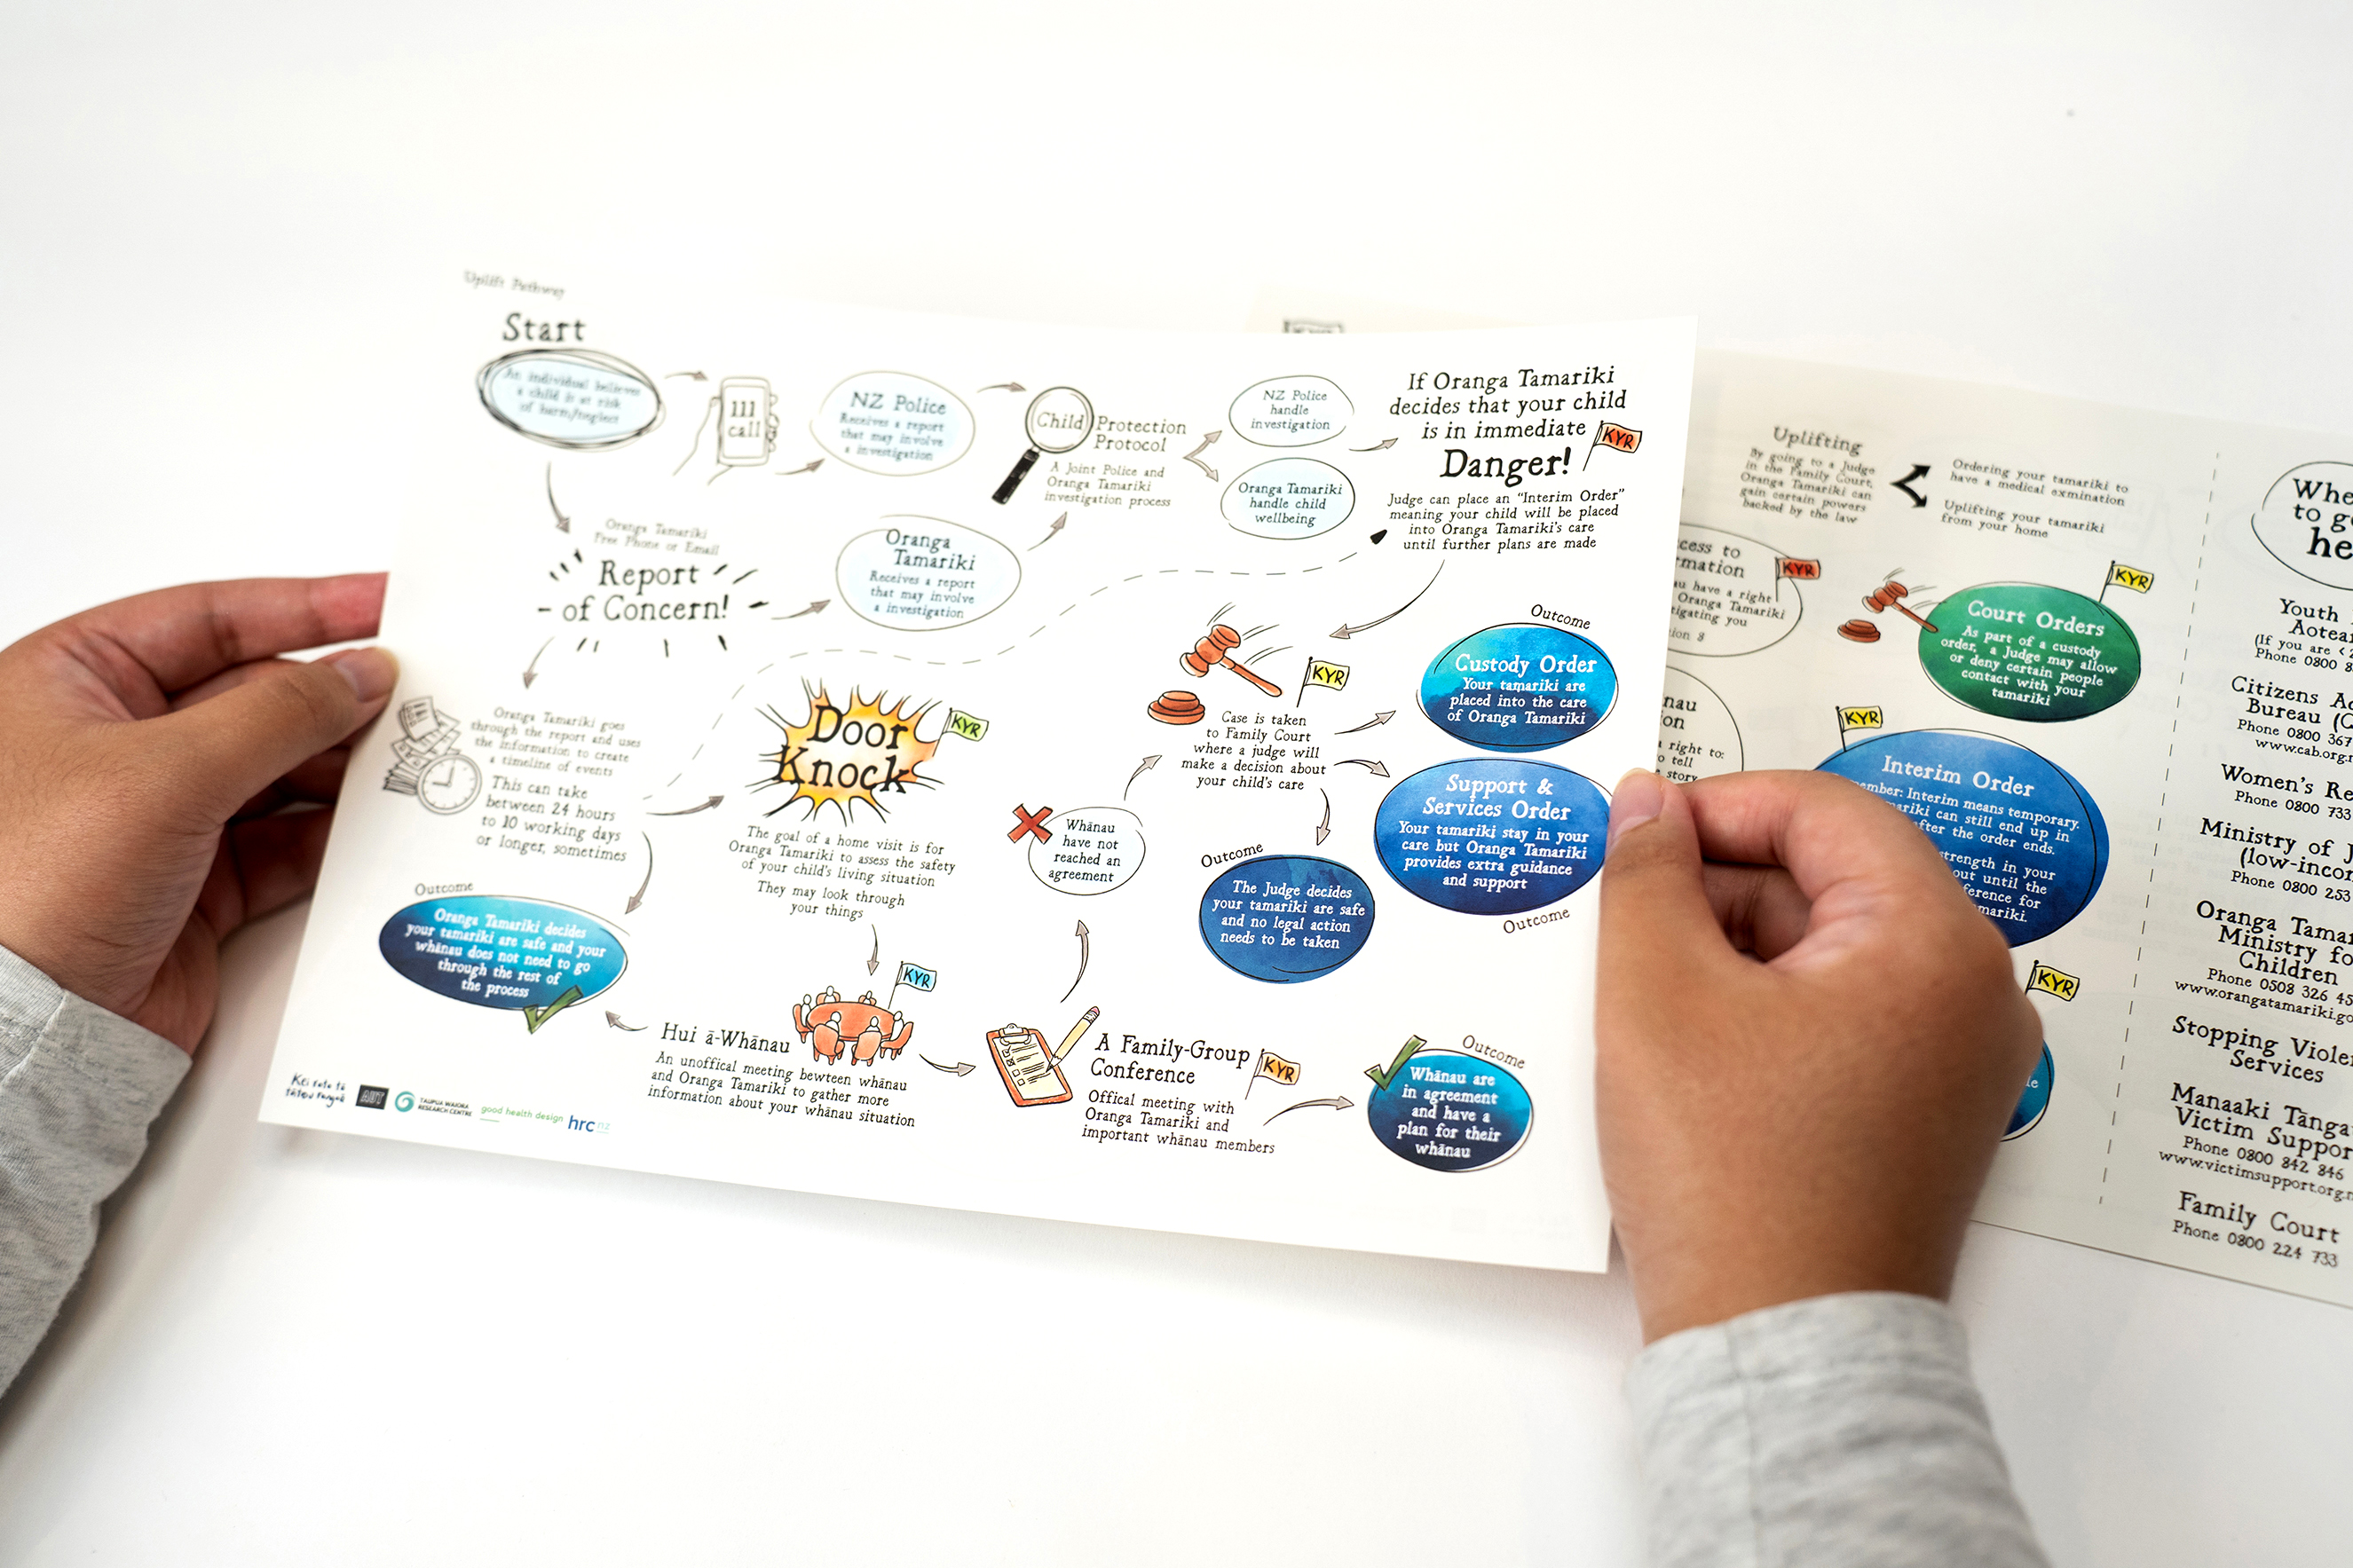 Uplift Pathway
Start
An individual believes
a child is at risk
of harm/neglect
111
call
NZ Police
Receives a report
that may involve
a investigation
Child Protection
Protocol
A Joint Police and
Oranga Tamariki
investigation process
NZ Police
handle
investigation
Oranga Tamariki
handle child
wellbeing
If Oranga Tamariki
decides that your child
is in immediate
Danger!
KYR
Judge can place an “Interim Order”
meaning your child will be placed
into Oranga Tamariki's care
until further plans are made
Oranga Tamariki
Free Phone or Email
Report
of Concern!
Oranga
Tamariki
Receives a report
that may involve
a investigation
Oranga Tamariki goes
through the report and uses
the information to create
a timeline of events
This can take
between 24 hours
to 10 working days
or longer, sometimes
Outcome
Oranga Tamariki decides
your tamariki are safe and your
whānau does not need to go
through the rest of
the process
Door
Knock
KYR
The goal of a home visit is for
Oranga Tamariki to assess the safety
of your child's living situation
They may look through
your things
KYR
Hui ā-Whānau
An unoffical meeting bewteen whānau
and Oranga Tamariki to gather more
information about your whānau situation
A Family-Group
Conference
KYR
Offical meeting with
Oranga Tamariki and
important whānau members
Outcome
Whānau are
in agreement
and have a
plan for their
whānau
Whānau
have not
reached an
agreement
KYR
Case is taken
to Family Court
where a judge will
make a decision about
your child's care
Outcome
Custody Order
Your tamariki are
placed into the care
of Oranga Tamariki
Support &
Services Order
Your tamariki stay in your
care but Oranga Tamariki
provides extra guidance
and support
Outcome
Outcome
The Judge decides
your tamariki are safe
and no legal action
needs to be taken
AUT
TAUPUA WAIORA
RESEARCH CENTRE
good health design
hrc nz
Uplifting
By going to a Judge
in the Family Court,
Oranga Tamariki can
gain certain powers
backed by the law
Ordering your tamariki to
have a medical exmination
Uplifting your tamariki
from your home
cess to
mation
KYR
au have a right
Oranga Tamariki
tigating you
ion 3
nau
on
a right to:
o tell
story
KYR
Court Orders
As part of a custody
order, a Judge may allow
or deny certain people
contact with your
tamariki
KYR
Interim Order
ember: Interim means temporary.
mariki can still end up in
after the order ends.
strength in your
out until the
ference for
mariki.
KYR
Whe
to g
he
Youth
Aotea
(If you are < 2
Phone 0800 8
Citizens Ad
Bureau (C
Phone 0800 367
www.cab.org.n
Women's Re
Phone 0800 733
Ministry of J
(low-incom
Phone 0800 253
Oranga Tamar
Ministry fo
Children
Phone 0508 326 45
www.orangatamariki.go
Stopping Violen
Services
Manaaki Tānga
Victim Suppor
Phone 0800 842 846
www.victimsupport.org.n
Family Court
Phone 0800 224 733